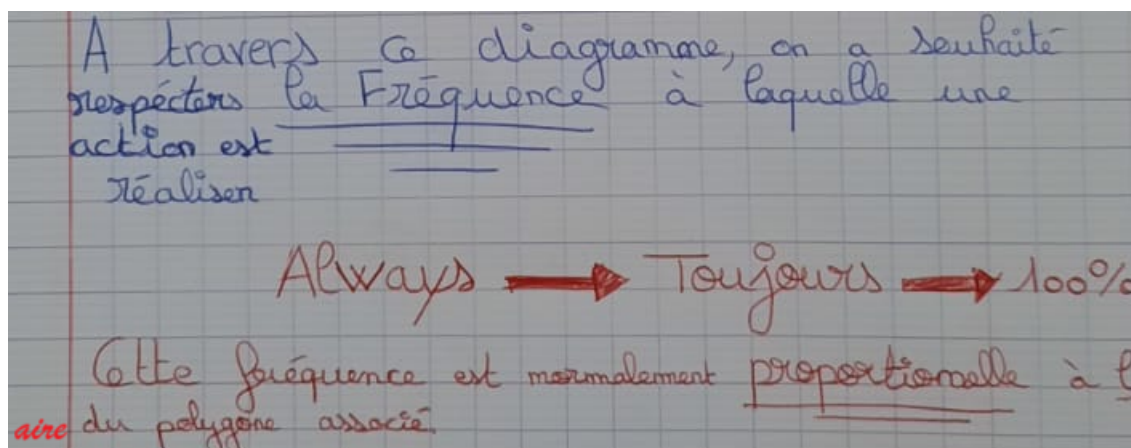 A travers ce diagramme, on a souhaité
respécters la Fréquence à laquelle une
action est
réaliser
Always → Toujours → 100%
Cette fréquence est normalement proportionnelle à l
aire du polygone associé.